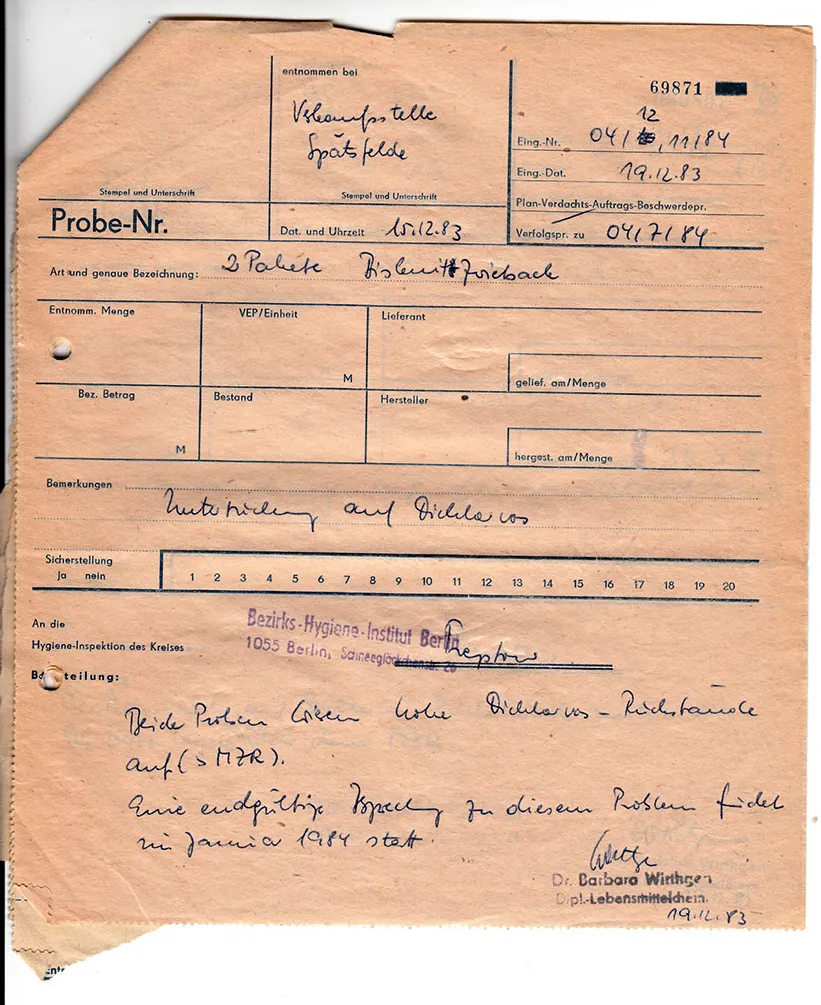 entnommen bei
69871
Verkaufsstelle
Spätsfelde
12
Eing.-Nr. 04/ , 11/84
Eing.-Dat. 19.12.83
Stempel und Unterschrift
Stempel und Unterschrift
Plan-Verdachts-Auftrags-Beschwerdepr.
Probe-Nr.
Dat. und Uhrzeit 15.12.83
Verfolgspr. zu 04/7/84
Art und genaue Bezeichnung: 2 Pakete Biskuitzwieback
Entnomm. Menge
VEP/Einheit
Lieferant
M
gelief. am/Menge
Bez. Betrag
Bestand
Hersteller
M
hergest. am/Menge
Bemerkungen
Untersuchung auf Dichlorvos
Sicherstellung
ja nein
1 2 3 4 5 6 7 8 9 10 11 12 13 14 15 16 17 18 19 20
An die
Bezirks-Hygiene-Institut Berlin
Hygiene-Inspektion des Kreises
1055 Berlin, Schneeglöckchenstr. 26
Treptow
B teilung:
Beide Proben wiesen hohe Dichlorvos-Rückstände
auf (> MZR).
Eine endgültige Bsprechung zu diesem Problem findet
im Januar 1984 statt.
Dr. Barbara Wirthgen
Dipl.-Lebensmittelchem.
19.12.83